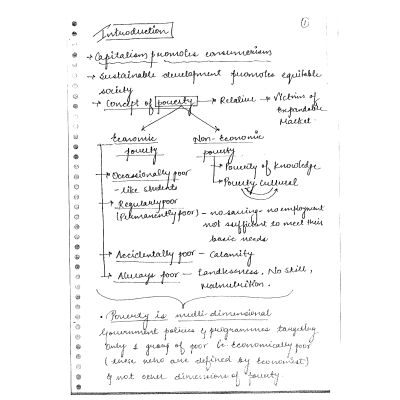 Introduction
1
→ Capitalism promotes consumerism
→ Sustainable development promotes equitable
society
→ Concept of poverty → Relative → Victims of
Expandable
Market.
Economic
poverty
Non-Economic
poverty
→ Poverty of knowledge
→ Poverty cultural
→ Occasionally poor
- like students
→ Regularly poor
(Permanently poor) - no saving - no employment
not sufficient to meet their
basic needs
→ Accidentally poor - Calamity
→ Always poor - Landlessness, No skill,
Malnutrition.
• Poverty is multi-dimensional
Government policies & programmes targeting
only 1 group of poor i.e. economically poor
(these who are defined by economist)
& not other dimensions of poverty